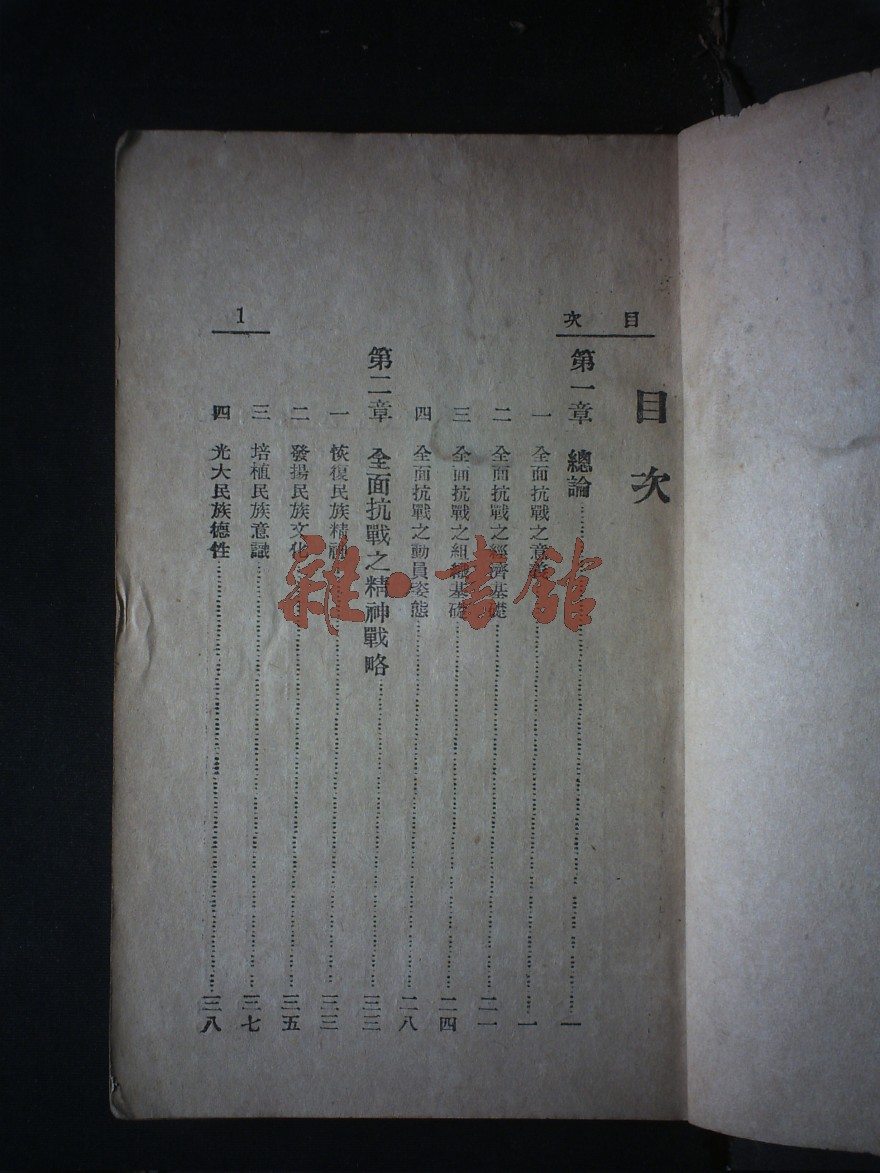 目次
目次
第一章 總論……一
一 全面抗戰之意義……一
二 全面抗戰之經濟基礎……二一
三 全面抗戰之組織基礎……二四
四 全面抗戰之動員姿態……二八
第二章 全面抗戰之精神戰略……三三
一 恢復民族精神……三三
二 發揚民族文化……三五
三 培植民族意識……三七
四 光大民族德性……三八
1
雜·書館